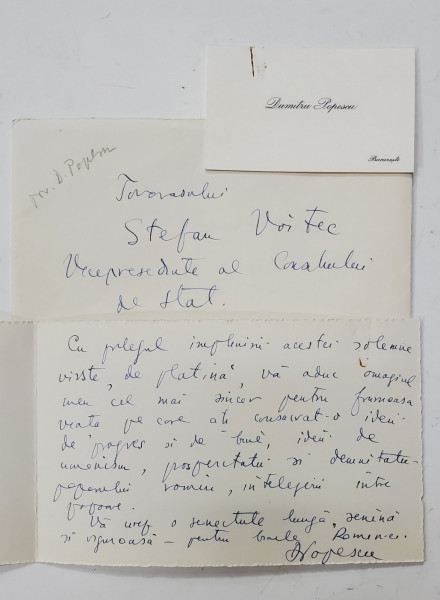 Dumitru Popescu
București
tov. D. Popescu
Tovarasului
Stefan Voitec
Vicepresedinte al Consiliului
de stat.
Cu prilegul implinirii acestei solemne
virste, de platină, vă aduc omagiul
meu cel mai sincer pentru frumoasa
viata pe care ati consacrat-o ideii
de progres si de bine, ideii de
umanism, prosperitatii si demnitatii
poporului romin, intelegerii intre
popoare.
Vă urez o senectute lungă, senină
si viguroasă – pentru binele Romaniei.
DPopescu